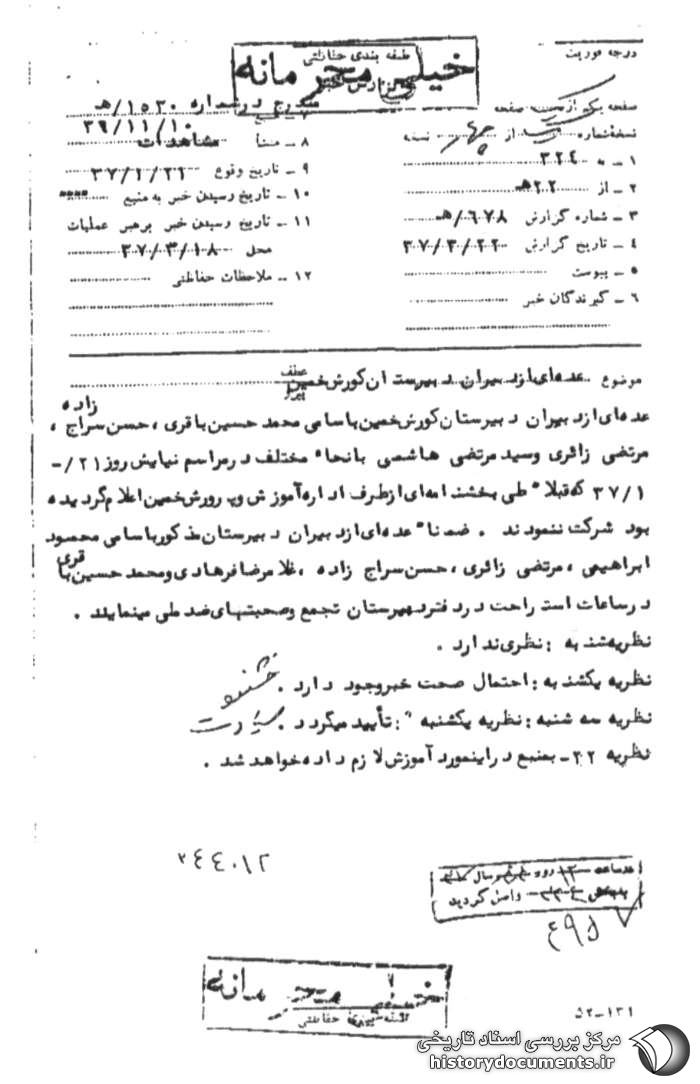 درجه فوریت
طبقه بندی حفاظتی
خیلی محرمانه
گزارش خبر
صفحه یک از یک صفحه
نسخه‌شماره از چهار نسخه
۱ ــ به ۳۲۴
۲ ــ از ۲۲هـ
۳ ــ شماره گزارش ۶۷۸/هـ
۴ ــ تاریخ گزارش ۳۷/۳/۲۲
۵ ــ پیوست
۶ ــ گیرندگان خبر
مندرج درشماره ۱۵۳۰/هـ
۳۶/۱۱/۱۰
۸ ــ منشأ مشاهدات
۹ ــ تاریخ وقوع ۳۷/۱/۲۱
۱۰ ــ تاریخ رسیدن خبر به منبع
۱۱ ــ تاریخ رسیدن خبر برهبر عملیات
محل ۳۷/۳/۱۸
۱۲ ــ ملاحظات حفاظتی
موضوع عده‌ای‌ازدبیران دبیرستان‌کورش‌خمین
عطف
پیرو
عده‌ای‌ازدبیران دبیرستان‌کورش‌خمین‌باسامی محمدحسین‌باقری ، حسن‌سراج زاده ،
مرتضی زائری وسیدمرتضی هاشمی بانحاء مختلف درمراسم نیایش‌روز۲۱/-
۳۷/۱ که‌قبلا" طی بخشنامه‌ای‌ازطرف اداره‌آموزش وپرورش‌خمین‌اعلام‌گردیده
بود شرکت ننمودند . ضمنا" عده‌ای‌ازدبیران دبیرستان‌مذکورباسامی محمود
ابراهیمی ، مرتضی زائری ، حسن‌سراج زاده ، غلامرضافرهادی‌ومحمدحسین‌باقری
درساعات استراحت دردفتردبیرستان تجمع وصحبتهای‌ضدملی مینمایند .
نظریه‌شنبه : نظری‌ندارد .
نظریه یکشنبه : احتمال صحت خبروجود دارد .
نظریه سه شنبه : نظریه یکشنبه ": تأییدمیگردد .
نظریه ۲۲ـ بمنبع دراینموردآموزش‌لازم داده‌خواهدشد .
۳۴۴۰۱۲
واصل گردید
خیلی محرمانه
طبقه‌بندی حفاظتی
۵۲ــ۱۳۱
مرکز بررسی اسناد تاریخی
historydocuments.ir